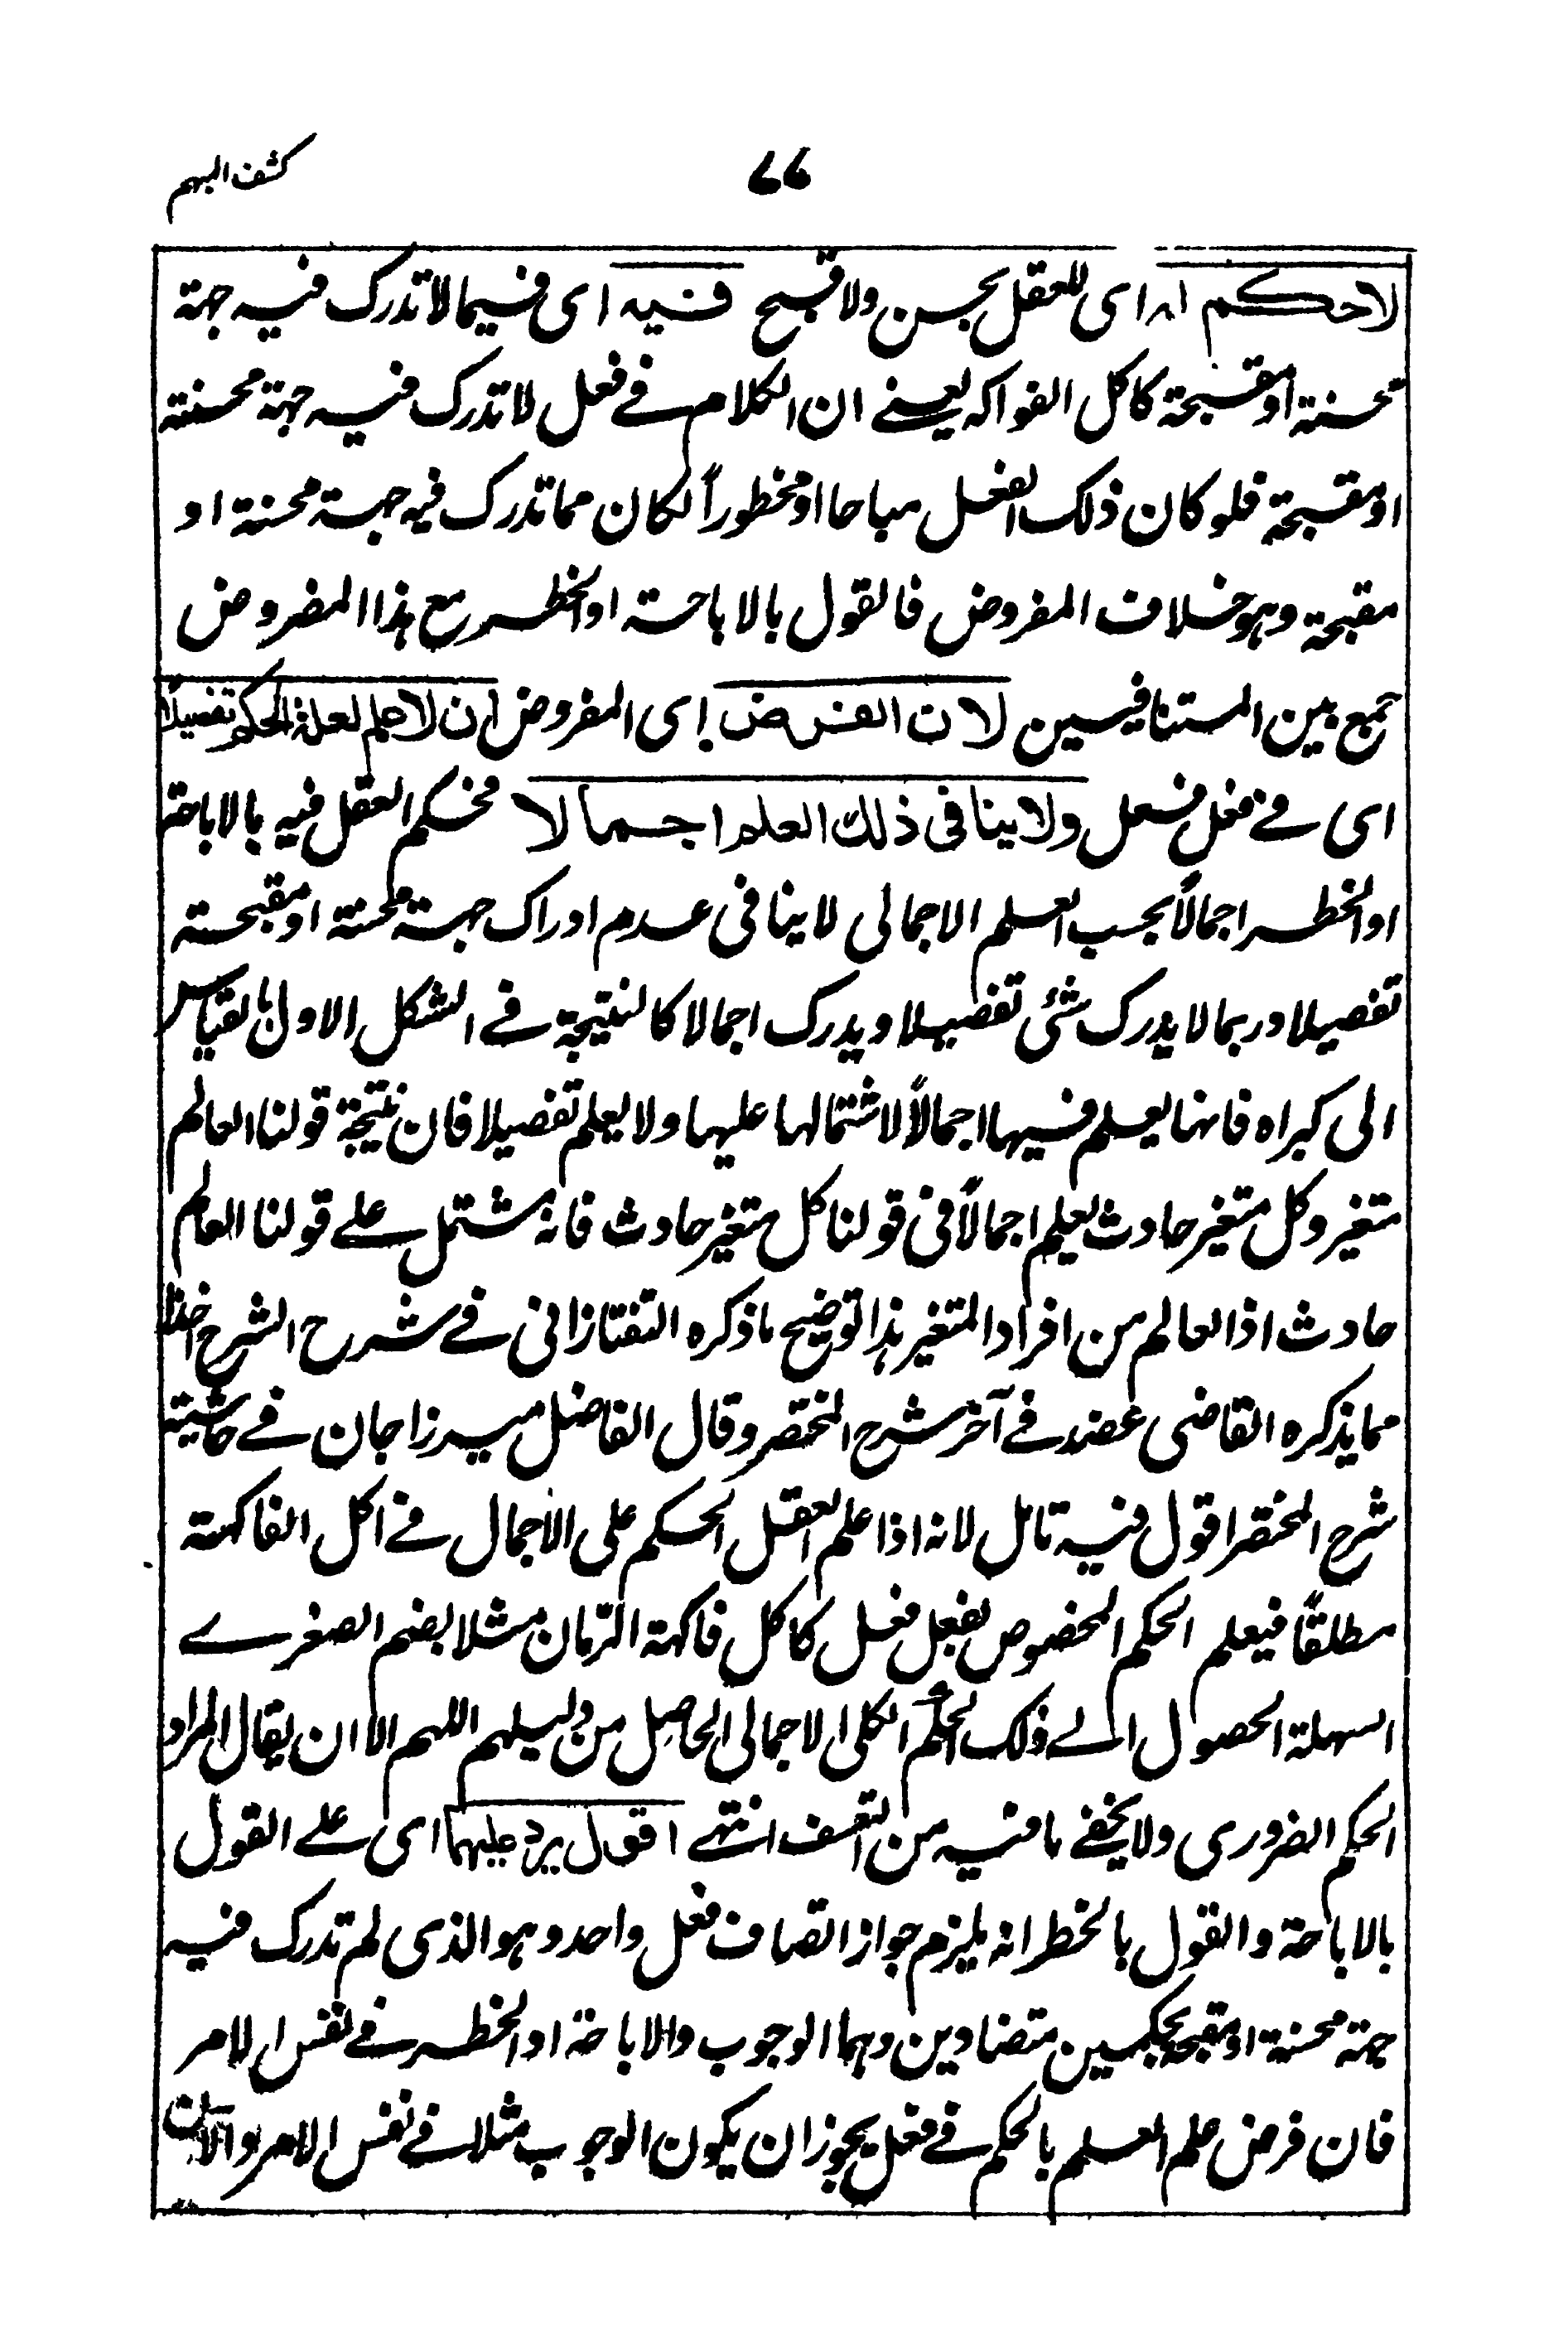 كشف المبهم
٧٧
لا حكم له اى للعقل بحسن ولا قبح فيه اى فيما لا تدرك فيه جهة
محسنة او مقبحة كاكل الفواكه يعنى ان الكلام فى فعل لا تدرك فيه جهة محسنة
او مقبحة فلو كان ذلك الفعل مباحا او محظوراً لكان مما تدرك فيه جهة محسنة او
مقبحة وهو خلاف المفروض فالقول بالاباحة او الحظر مع هذا المفروض
جمع بين المتنافيين لان الفرض اى المفروض ان لا علم لعلة الحكم تفصيلاً
اى فى فعل فعل ولا ينافى ذلك العلم اجمالا فحكم العقل فيه بالاباحة
او الحظر اجمالاً بحسب العلم الاجمالى لا ينافى عدم ادراك جهة محسنة او مقبحة
تفصيلا وربما لا يدرك شئى تفصيلا ويدرك اجمالا كالنتيجة فى الشكل الاول بالقياس
الى كبراه فانها يعلم فيها اجمالاً لاشتمالها عليها ولا يعلم تفصيلا فان نتيجة قولنا العالم
متغير وكل متغير حادث يعلم اجمالاً فى قولنا كل متغير حادث فانه مشتمل على قولنا العالم
حادث اذا العالم من افراد المتغير هذا توضيح ما ذكره التفتازانى فى شرح الشرح اخذا
مما يذكره القاضى عضد فى آخر شرح المختصر وقال الفاضل ميرزا جان فى حاشية
شرح المختصر اقول فيه تامل لانه اذا علم العقل الحكم على الاجمال فى اكل الفاكهة
مطلقاً فيعلم الحكم المخصوص لفعل فعل كاكل فاكهة الرّمان مثلا بضم الصغرى
السهلة الحصول الى ذلك الحكم الكلى الاجمالى الحاصل من دليلهم اللهم الا ان يقال المراد
الحكم الضرورى ولا يخفى ما فيه من التعسف انتهى اقول يرد عليهما اى على القول
بالاباحة والقول بالحظر انه يلزم جواز اتصاف فعل واحد وهو الذى لم تدرك فيه
جهة محسنة او مقبحة بحكمين متضادين وهما الوجوب والاباحة او الحظر فى نفس الامر
فان فرض علم العلم بالحكم فى فعل يجوز ان يكون الوجوب مثلا فى نفس الامر والآن